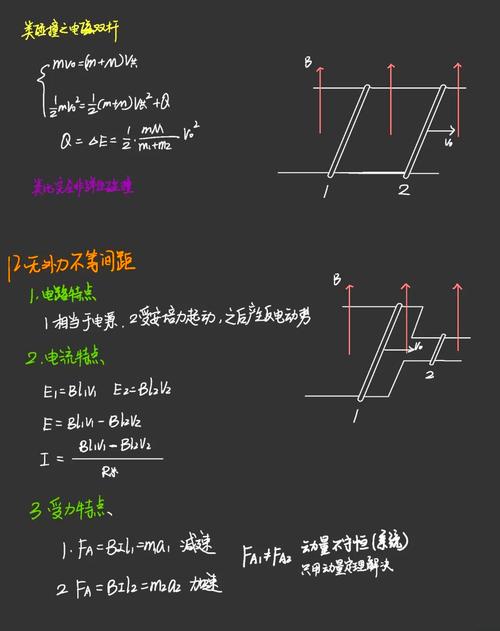 类碰撞之电磁双杆
mv₀=(m+M)V共
½mv₀²=½(m+m)V共²+Q
Q=△E=½·mM/m₁+m₂ V₀²
类比完全非弹性碰撞
B
V₀
1
2
12.无外力不等间距
1.电路特点
1相当于电源,2受安培力起动,之后产生反电动势
B
V₀
2
1
2.电流特点、
E₁=Bl₁V₁ E₂=Bl₂V₂
E=Bl₁V₁-Bl₂V₂
I=Bl₁V₁-Bl₂V₂/R总
3.受力特点、
1.FA=BIl₁=ma₁ 减速
2 FA=BIl₂=m₂a₂ 加速
FA₁≠FA₂ 动量不守恒(系统)
只用动量定理解决